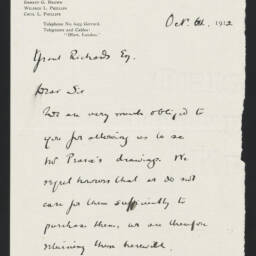 Ernest G. Brown
Wilfred L. Phillips
Cecil L. Phillips
Telephone No. 6493 Gerrard.
Telegrams and Cables:
Oct. 6th, 1912
Grant Richards Esq.
Dear Sir
We are very much obliged to
you for allowing us to see
Mr Pearse's drawings. We
regret however that as we do not
care for them sufficiently to
purchase them, we are therefore
returning them herewith.